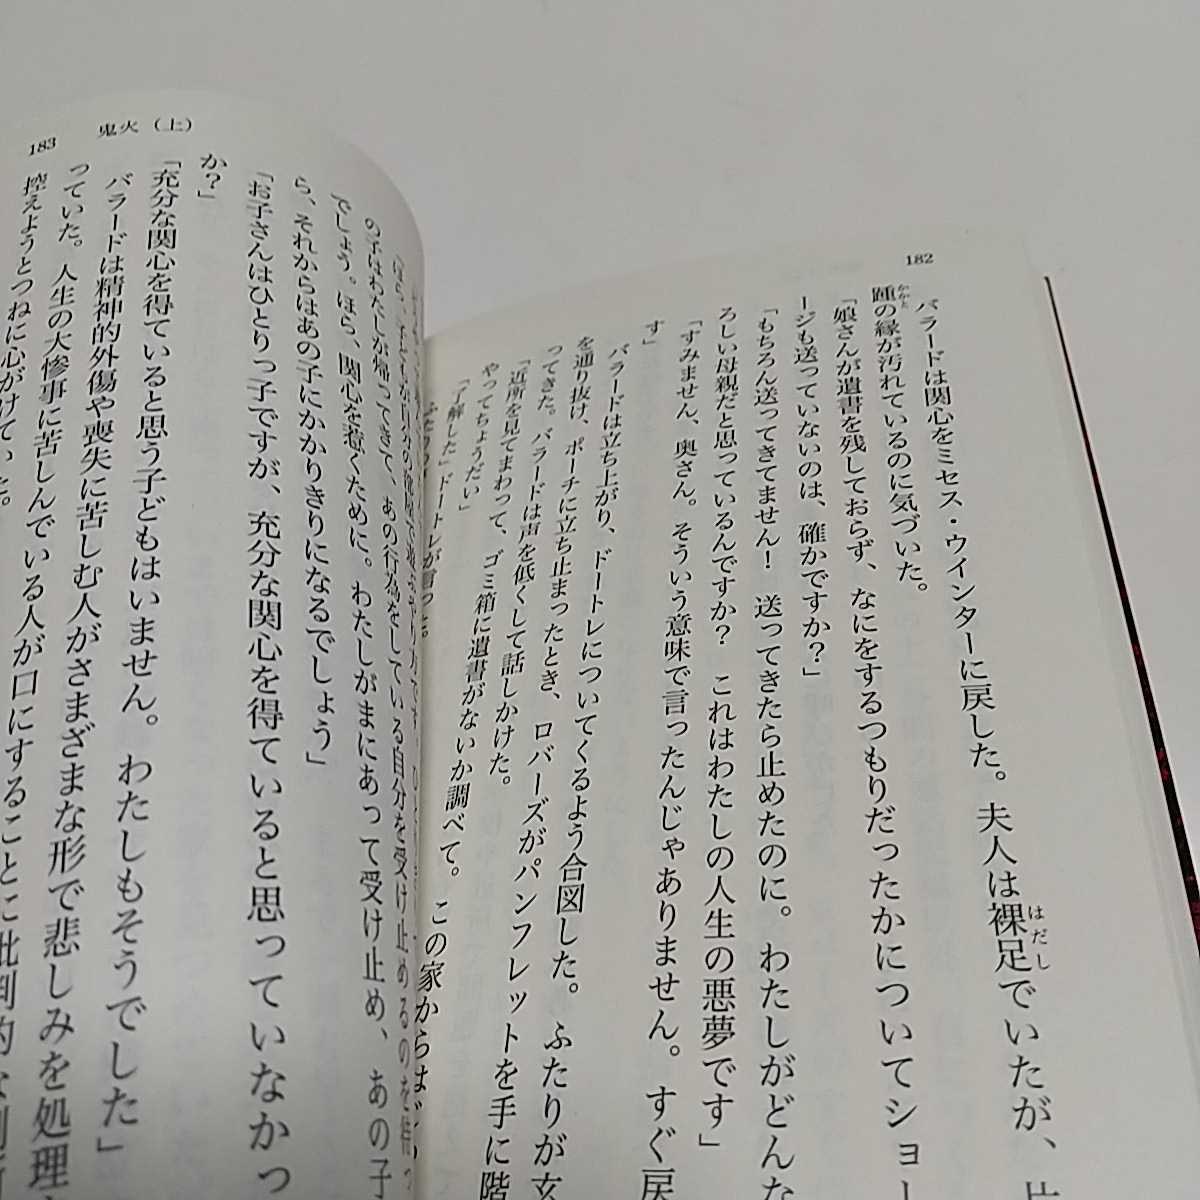 182
バラードは関心をミセス・ウインターに戻した。夫人は裸足でいたが、片
はだし
踵の縁が汚れているのに気づいた。
かかと
「娘さんが遺書を残しておらず、なにをするつもりだったかについてショー
ージも送っていないのは、確かですか？」
「もちろん送ってきてません！　送ってきたら止めたのに。わたしがどんな
ろしい母親だと思っているんですか？　これはわたしの人生の悪夢です」
「すみません、奥さん。そういう意味で言ったんじゃありません。すぐ戻
す」
バラードは立ち上がり、ドートレについてくるよう合図した。ふたりが玄
を通り抜け、ポーチに立ち止まったとき、ロバーズがパンフレットを手に階
ってきた。バラードは声を低くして話しかけた。
「近所を見てまわって、ゴミ箱に遺書がないか調べて。この家からは
やってちょうだい」
「了解した」ドートレが言った。
183
鬼火（上）
の子はわたしが帰ってきて、あの行為をしている自分を受け止めるのを待っ
でしょう。ほら、関心を惹くために。わたしがまにあって受け止め、あの子
ら、それからはあの子にかかりきりになるでしょう」
「お子さんはひとりっ子ですが、充分な関心を得ていると思っていなかっ
か？」
「充分な関心を得ていると思う子どもはいません。わたしもそうでした」
バラードは精神的外傷や喪失に苦しむ人がさまざまな形で悲しみを処理
っていた。人生の大惨事に苦しんでいる人が口にすることに批判的な判断
控えようとつねに心がけていた。